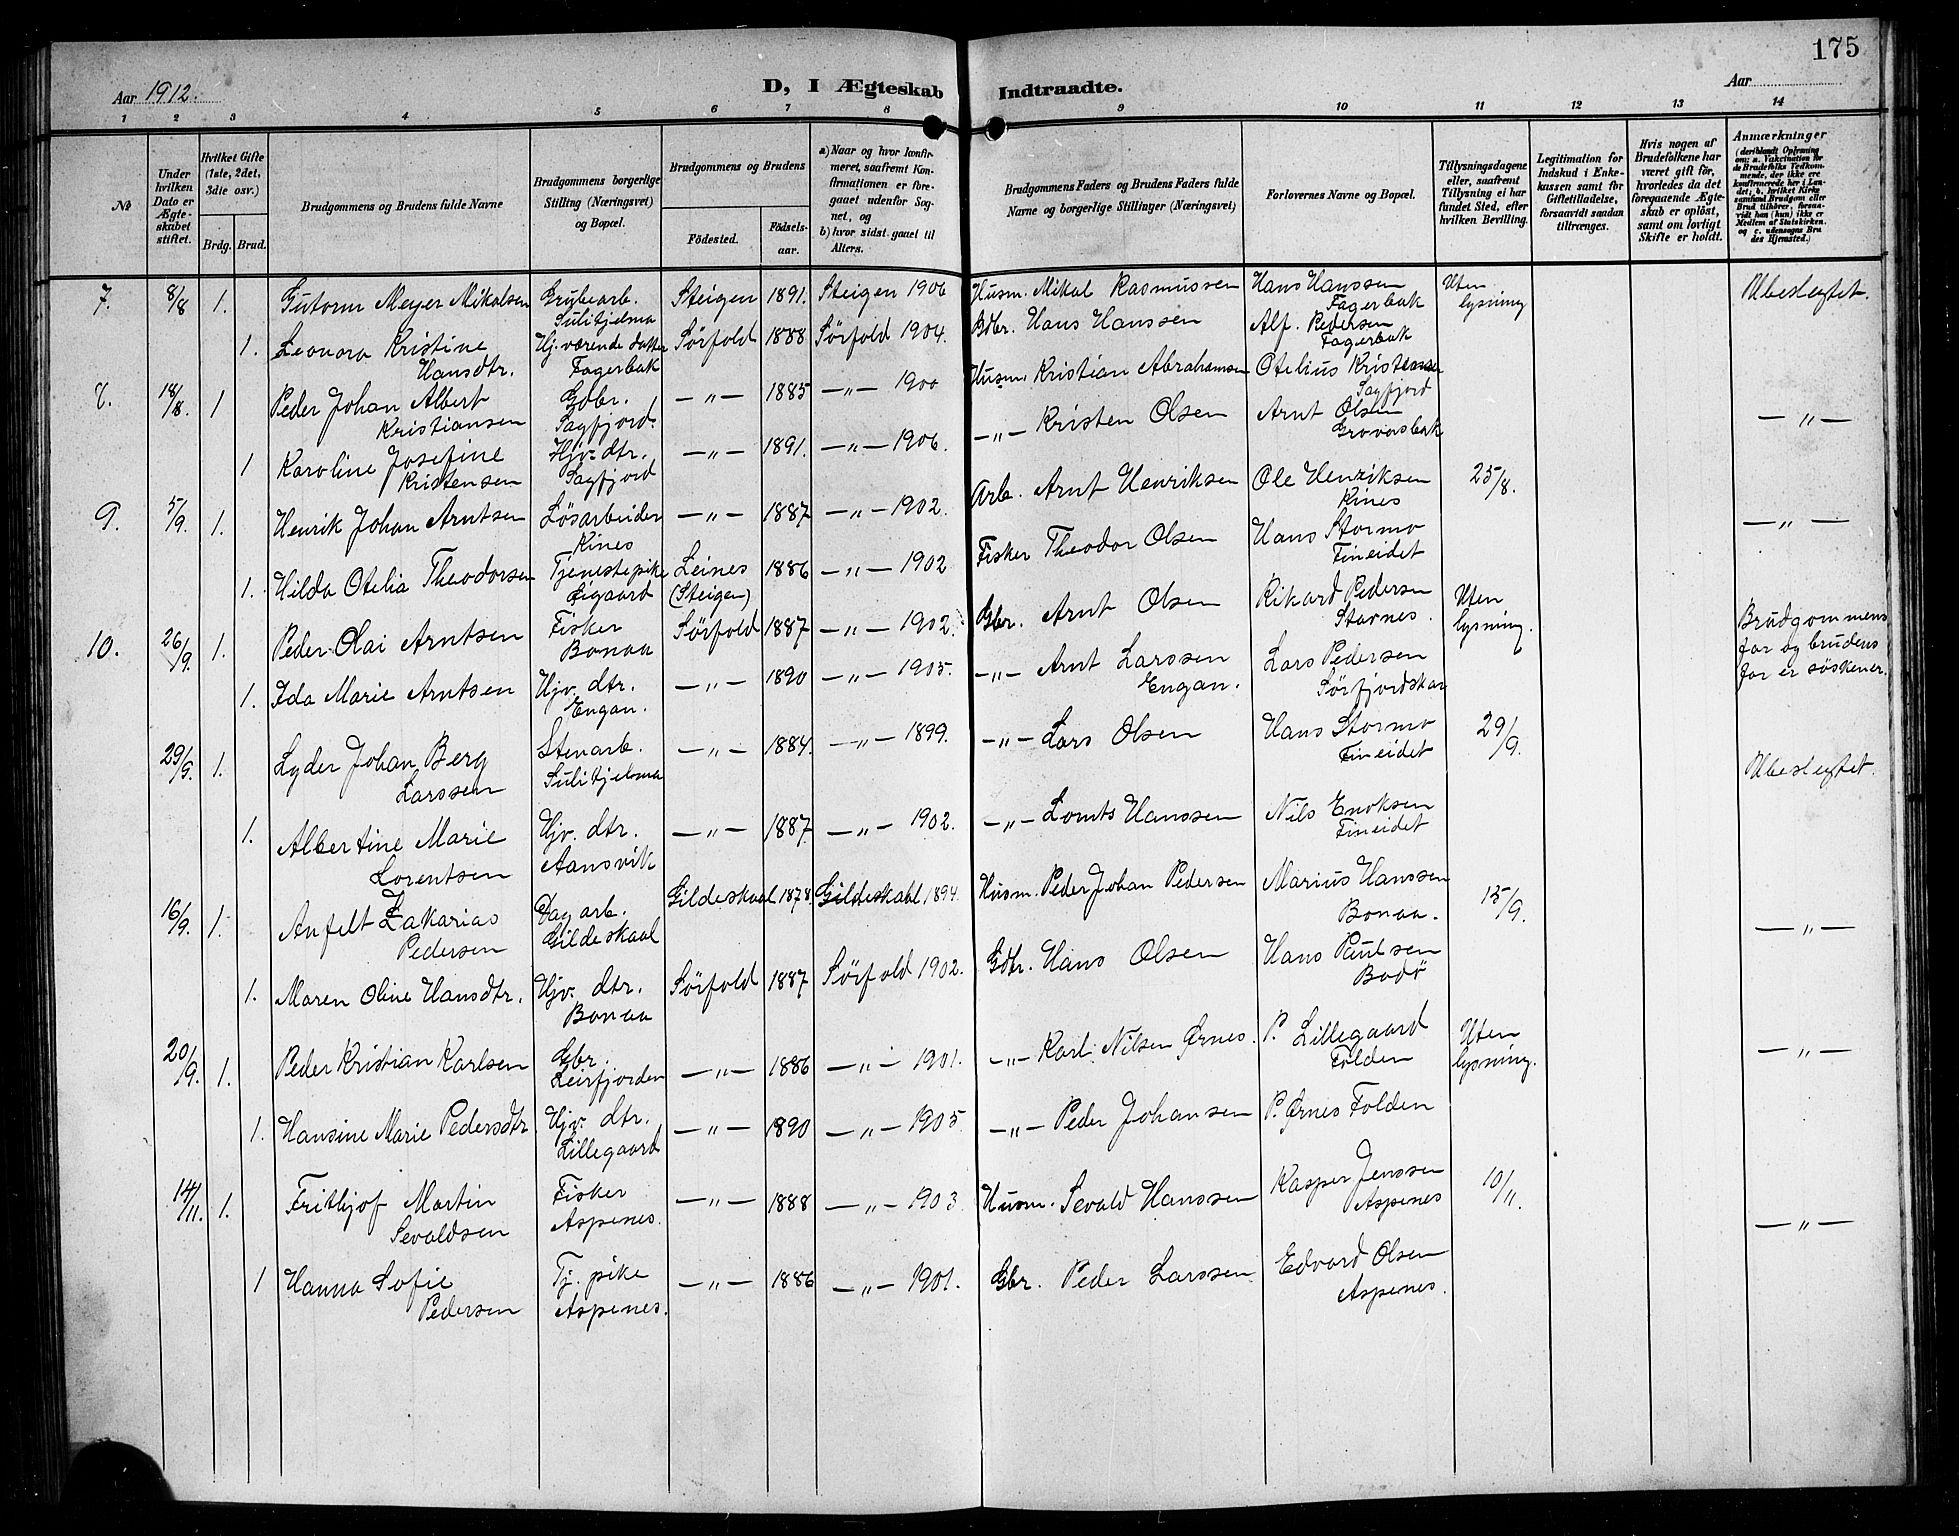 175
Aar 1912.
D, I Ægteskab Indtraadte.
Aar
1 2 3 4 5 6 7 8 9 10 11 12 13 14
No
Under hvilken Dato er Ægteskabet stiftet.
Hvilket Gifte (1ste, 2det, 3die osv.)
Brdg. Brud.
Brudgommens og Brudens fulde Navne
Brudgommens borgerlige Stilling (Næringsvei) og Bopæl.
Brudgommens og Brudens
Fødested. Fødselsaar.
a) Naar og hvor konfirmeret, saafremt Konfirmationen er foregaaet udenfor Sognet, og
b) hvor sidst gaaet til Alters.
Brudgommens Faders og Brudens Faders fulde Navne og borgerlige Stillinger (Næringsvei)
Forlovernes Navne og Bopæl.
Tillysningsdagene eller, saafremt Tillysning ei har fundet Sted, efter hvilken Bevilling.
Legitimation for Indskud i Enkekassen samt for Giftetilladelse, forsaavidt saadan tiltrænges.
Hvis nogen af Brudefolkene har været gift før, hvorledes da det foregaaende Ægteskab er opløst, samt om lovligt Skifte er holdt.
Anmærkninger
(deriblandt Oplysning om: a. Vakcination for de Brudefolks Vedkommende, der ikke ere konfirmerede her i Landet; b. hvilket Kirkesamfund Brudgom eller Brud tilhører, forsaavidt han (hun) ikke er Medlem af Statskirken. og c. udensogns Brudes Hjemsted.)
7. 8/8 1. Gutorm Meyer Mikalsen Grubearb. Sulitjelma Steigen 1891. Steigen 1906 Husm. Mikal Rasmussen Hans Hanssen Fagerbak Uten lysning Ubeslegtet.
1. Leonora Kristine Hansdtr. Hj. værende datter Fagerbak Sörfold 1888 Sörfold 1904. Gdbr. Hans Hanssen Alf. Pedersen Fagerbak
8. 18/8. 1 Peder Johan Albert Kristiansen Gdbr. Sagfjord. —"— 1885 —"— 1900 Husm. Kristian Abrahamsen Otelius Kristiansen Sagfjord —"—
1 Karoline Josefine Kristensen Hjv. dtr. Sagfjord —"— 1891. —"— 1906. —"— Kristen Olsen Arnt Olsen
9. 5/9. 1. Henrik Johan Arntsen Lösarbeider Rines —"— 1887 —"— 1902. Arb. Arnt Henriksen Ole Henriksen Rines 25/8. —"—
1. Hilda Otelia Theodorsen Tjenestepike Leines (Steigen) 1886 —"— 1902 Fisker Theodor Olsen Hans Stormo Fineidet
10. 26/9. 1. Peder Olai Arntsen Fisker Bonaa Sörfold 1887 —"— 1902. Gbr. Arnt Olsen Rikard Pedersen Stornes. Uten lysning. Brudgommens far og brudens far er söskener.
1. Ida Marie Arntsen Hjv. dtr. Engan. —"— 1890 —"— 1905. —"— Arnt Larssen Engan. Lars Pedersen Sörfjordskar
29/9. 1. Lyder Johan Berg Larssen Stenarb. Sulitjelma —"— 1884. —"— 1899. —"— Lars Olsen Hans Stormo Fineidet 29/9. Ubeslegtet.
1. Albertine Marie Lorentsen Hjv. dtr. Aansvik —"— 1887 —"— 1902. —"— Hanssen Nils Enoksen Fineidet
16/9. 1. Anfelt Zakarias Pedersen Dagarb. Gildeskaal Gildeskaal 1878 Gildeskaal 1894. Husm. Peder Johan Pedersen Marius Hanssen Bonaa. 15/9. —"—
1. Maren Oline Hansdtr. Hjv. dtr. Bonaa Sörfold 1887 Sörfold 1902. Gdbr. Hans Olsen Hans Paulsen Bodö
20/9. 1. Peder Kristian Karlsen Gbr. Leirfjorden —"— 1886 —"— 1901. —"— Karl Nilsen Ørnes. P. Lillegaard Folden Uten lysning. —"—
1. Hansine Marie Pedersdtr Hjv. dtr. Lillegaard —"— 1890 —"— 1905 —"— Peder Johansen P. Ørnes Folden
14/11. 1. Frithjof Martin Sevaldsen Fisker Aspenes. —"— 1888 —"— 1903 Husm. Sevald Hanssen Kasper Jenssen Aspenes 10/11. —"—
1 Hanna Sofie Pedersen Tj. pike Aspenes. —"— 1886 —"— 1901. Gbr. Peder Larssen Edvard Olsen Aspenes.